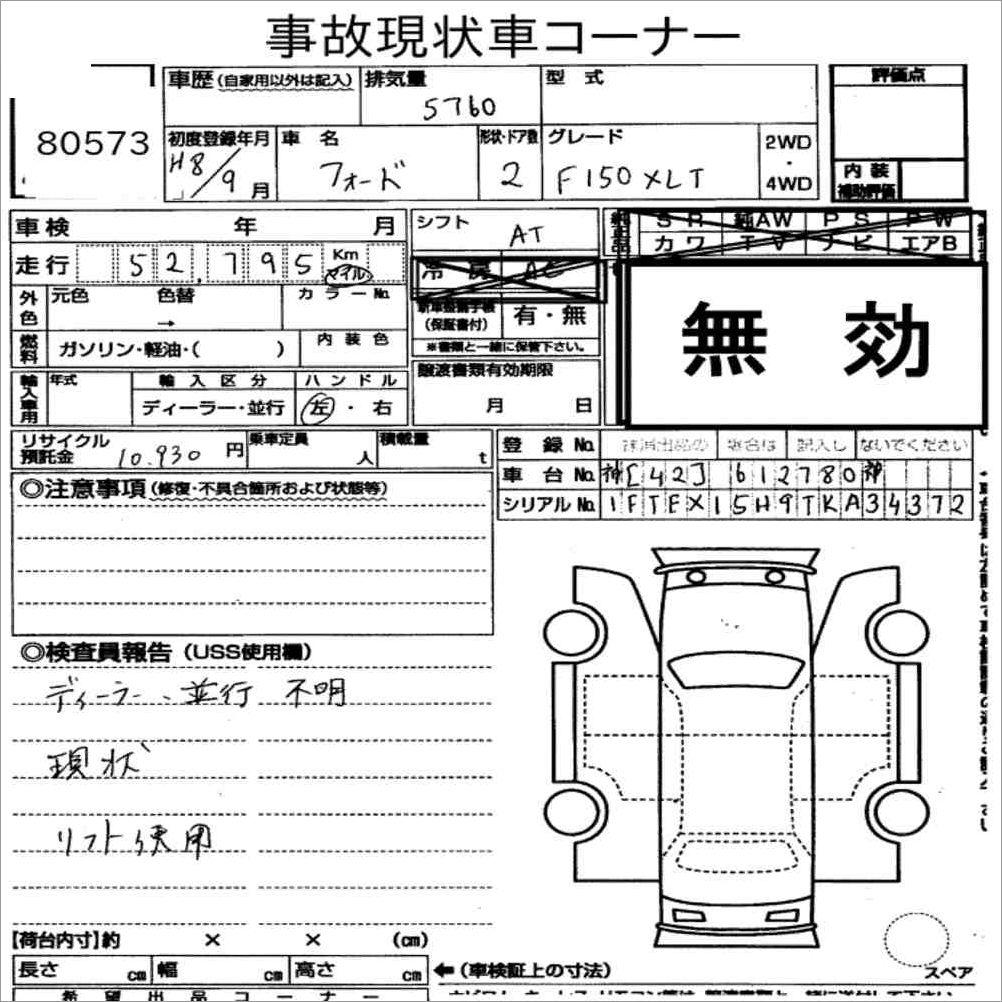 事故現状車コーナー
80573
車歴(自家用以外は記入)
排気量
5760
型式
評価点
初度登録年月
H8/9月
車名
フォード
形状・ドア数
2
グレード
F150 XLT
2WD
・
4WD
内装
補助評価
車検 年 月
シフト
AT
純正品
SR 純AW PS PW
カワ TV ナビ エアB
走行 52,795 Km
マイル
冷房 AC
無効
外色
元色 色替 カラーNo.
→
新車整備手帳
(保証書付)
有・無
※書類と一緒に保管下さい。
燃料
ガソリン・軽油・( )
内装色
譲渡書類有効期限
月 日
輸入車用
年式
輸入区分
ハンドル
ディーラー・並行
左・右
リサイクル
預託金
10.930 円
乗車定員
人
積載量
t
登録No.
抹消出品の 場合は 記入し ないでください
車台No. 神[42]612780神
シリアルNo. 1FTEX15H9TKA34372
◎注意事項(修復・不具合箇所および状態等)
◎検査員報告(USS使用欄)
ディーラー、並行 不明
現状
リフト使用
【荷台内寸】約 × × (cm)
長さ cm 幅 cm 高さ cm
←(車検証上の寸法)
スペア
希望出品コーナー